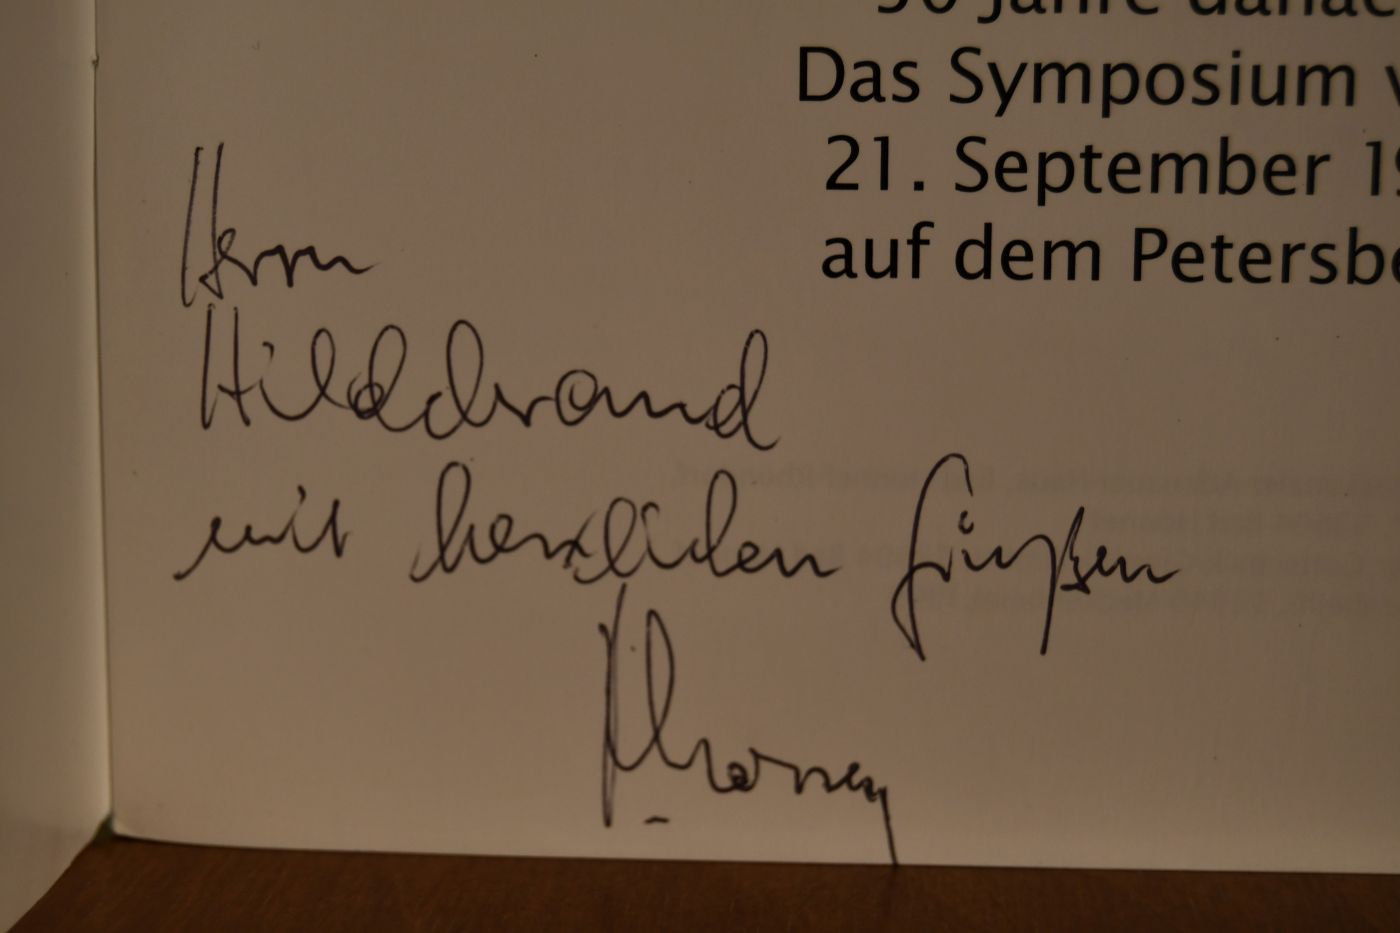 50 Jahre danac
Das Symposium v
21. September 19
auf dem Petersbe
Herrn
Hildebrand
mit herzlichen Grüßen